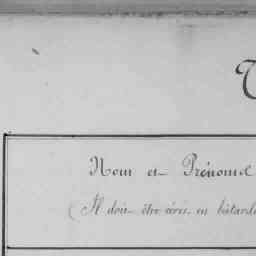 Nom et Prénoms
(Il doit être écrit en bâtarde